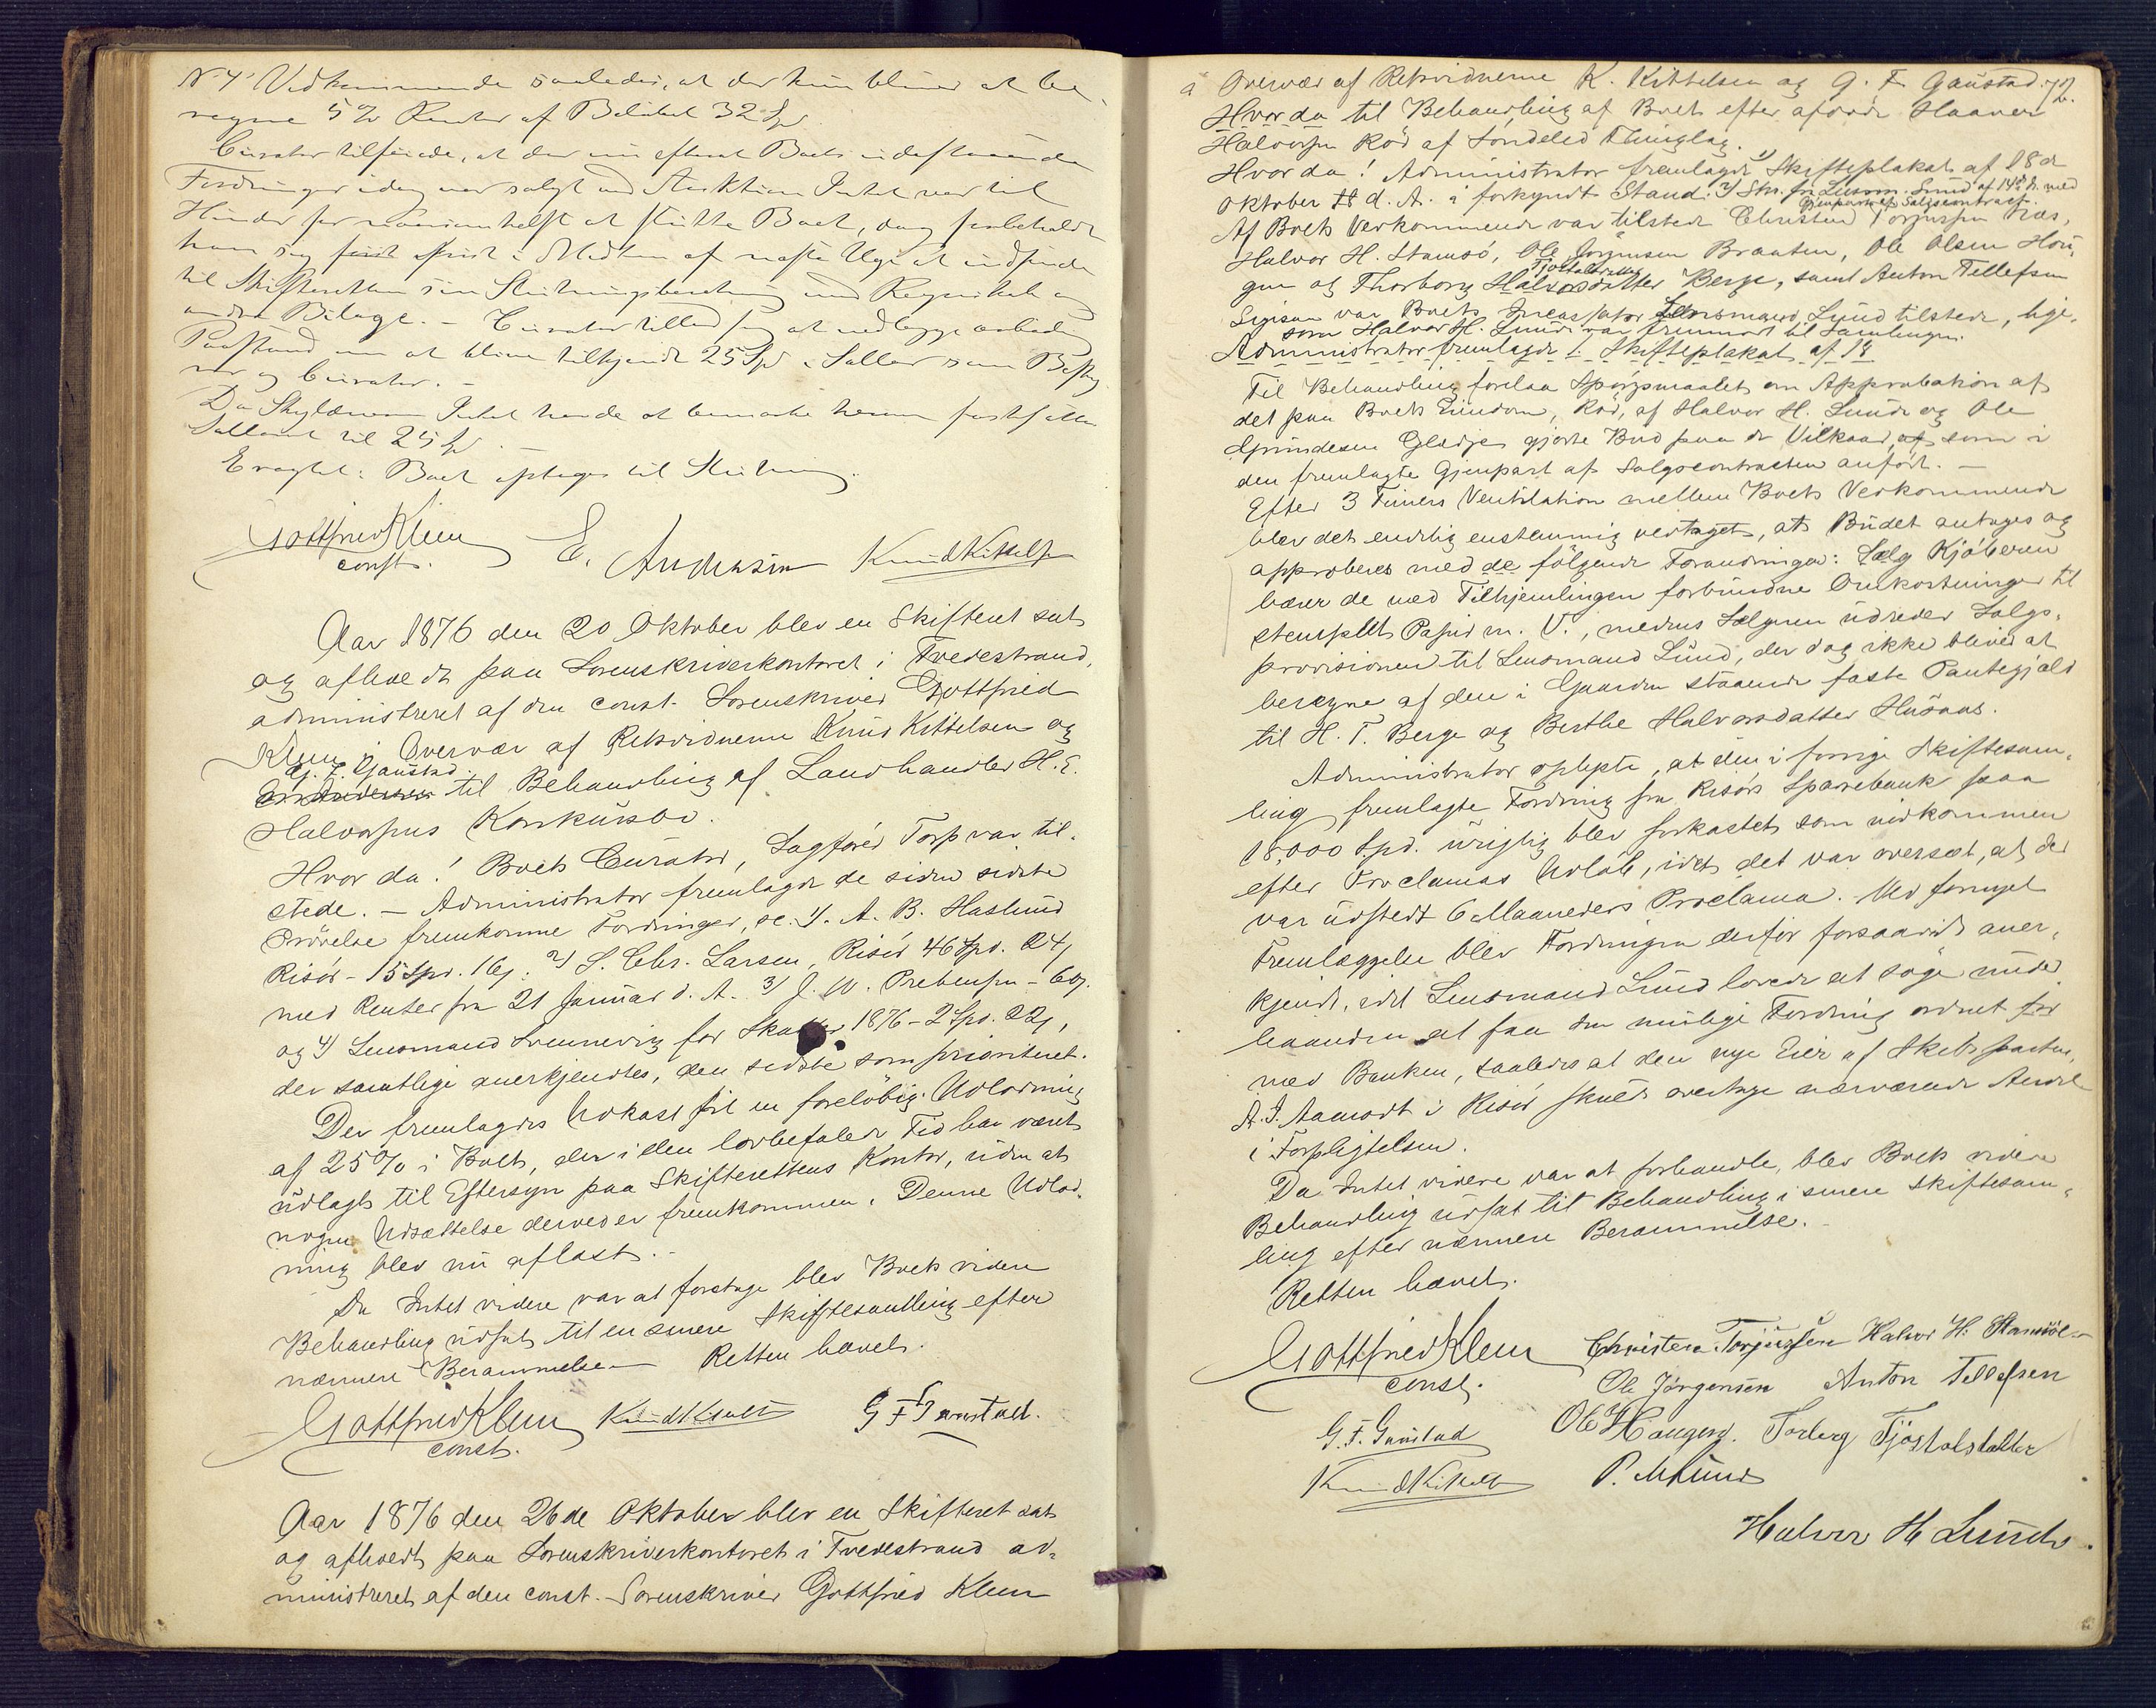 No 4 Vedkommende saaledes, at der kun bliver at be-
regne 5% Renter af Beløbet 32 Spd
Curator tilføiede, at der nu efterat Boets udestaaende
Fordringer idag var solgt ved Auktion Intet var til
Hinder for at slutte Boet, dog forbeholdt
han sig først i Midten af næste Uge at indfinde
til Skifteretten sin Slutningsberetning med Regnskab og
andre Bilage. – Curator tillod sig at nedlægge
Paastand om at blive tilkjendt 25 Spd i Sallær som Besty-
rer og Curator. –
Da Skyldneren Intet havde at bemærke herom fastsattes
Sallæret til 25 Spd.
Eragtet: Boet optages til Slutning.
Gottfried Klem
const.
E. Andersen
Knud Kittelsen
Aar 1876 den 20 Oktober blev en Skifteret sat
og afholdt paa Sorenskriverkontoret i Tvedestrand,
administreret af den const. Sorenskriver Gottfried
Klem i Overvær af Retsvidnerne Knud Kittelsen og
G. F. Gaustad
E. Andersen til Behandling af Landhandler H. E.
Halvorsens Konkursbo.
Hvor da! Boets Curator, Sagfører Torp var til-
stede. – Administrator fremlagde de siden sidste
Prøvelse fremkomne Fordringer, sc. 1/ A. B. Haslund
Risør – 15 Spd. 16 ß. 2/ S. Chr. Larsen, Risør 46 Spd. 24 ß
med Renter fra 21 Januar d. A. 3/ J. W. Prebensen – 60 ß.
og 4/ Lensmand Svennevig for Skatter 1876 – 2 Spd. 22 ß,
der samtlige anerkjendtes, den sidste som prioriteret.
Der fremlagdes Udkast til en foreløbig Udlodning
af 25% i Boet, der i den lovbefalede Tid har været
udlagt til Eftersyn paa Skifterettens Kontor, uden at
nogen Udsættelse derved er fremkommen. Denne Udlod-
ning blev nu aflæst. –
Da Intet videre var at foretage blev Boets videre
Behandling udsat til en senere Skiftesamling efter
nærmere Berammelse – Retten hævet.
Gottfried Klem
const.
Knud Kittelsen
G F Gaustad.
Aar 1876 den 26de Oktober blev en Skifteret sat
og afholdt paa Sorenskriverkontoret i Tvedestrand ad-
ministreret af den const. Sorenskriver Gottfried Klem
72.
i Overvær af Retsvidnerne K. Kittelsen og G. F. Gaustad.
Hvor da til Behandling af Boet efter afdøde Haaver
Halvorsen Rød af Søndeled Thinglag.
Hvor da! Administrator fremlagde 1/ Skifteplakat af 18de
Oktober d. A. i forkyndt Stand. 2/ Skr. fra Lensm. Lund af 14de ds. med
Gjenpart af Salgscontract.
Af Boets Vedkommende var tilstede Christen Torjussen Næs,
Halvor H. Stamsø, Ole Jørgensen Braaten, Ole Olsen Hou-
Tjøstolsdatter
gen og Thorborg Halvorsdatter Berge, samt Anton Tellefsen
Ligesom var Boets Incassator Lensmand Lund tilstede, lige-
som Halvor H. Lunde var fremmødt til Samlingen.
Administrator fremlagde 1. Skifteplakat af 18
Til Behandling forelaa Spørgsmaalet om Approbation af
det paa Boets Eiendom, Rød, af Halvor H. Lunde og Ole
Gundersen Gledje gjorte Bud paa de Vilkaar, af som i
den fremlagte Gjenpart af Salgscontracten anført. –
Efter 3 Timers Ventilation mellem Boets Vedkommende
blev det endelig enstemmig vedtaget, at Budet antages og
approberes med de følgende Forandringer: Sælg Kjøberen
bærer de ved Tilhjemlingen forbundne Omkostninger til
stemplet Papir m. V., medens Sælgeren udreder Salgs-
provisionen til Lensmand Lund, der dog ikke bliver at
beregne af den i Gaarden staaende faste Pantegjæld
til H. T. Berge og Berthe Halvorsdatter Husaas.
Administrator oplyste, at den i forrige Skiftesam-
ling fremlagte Fordring fra Risørs Sparebank paa
18,000 Spd. urigtig blev forkastet som indkommen
efter Proclamas Udløb, idet det var overseet, at der
var udstedt 6 Maaneders Proclama. Ved fornyet
Fremlæggelse blev Fordringen derfor forsaavidt aner-
kjendt, idet Lensmand Lund lovede at søge under
haanden at faa den mulige Fordring ordnet for
med Banken, saaledes at den nye Eier af Skibsparten,
A. I. Aamodt i Risør skulde overtage nærværende Andel
i Forpligtelsen.
Da Intet videre var at forhandle, blev Boets videre
Behandling udsat til Behandling i senere Skiftesam-
ling efter nærmere Berammelse. –
Retten hævet.
Gottfried Klem
const.
Christen Torjussen Halvor H. Stamsøe
Ole Jørgensen Anton Tellefsen
G. F. Gaustad
Ole Haugen. Torberg Tjøstolsdatter
Knud Kittelsen
P. M Lund
Halvor H Lunde.